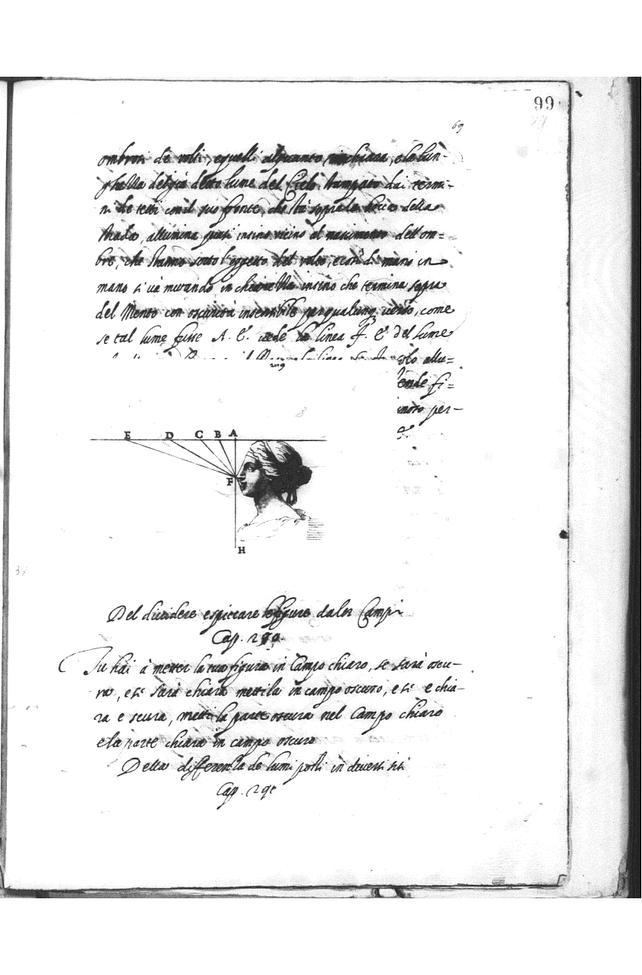 99
69
ombrosi de volti, e quelli alquanto rischiara, e la lun-
ghezza del già detto lume del Cielo stampato dai termi-
ni de tetti con il suo fronte, che sta sopra la strada, allumina
strada, allumina quasi insino vicino al nascimento dell'om-
bre, che stanno sotto l'oggetto del volto, e così di mano in
mano si va mutando in chiarezza insino che termina sopra
del Mento con oscurità insensibile per qualunq. verso, come
se tal lume fusse A. E. vede la linea F. E del lume
allu=
fi=
per-
E D C B A
F
H
Del dividere e spiccare le figure da lor Campi
Cap. 290
Tu hai a metter la tua figura in Campo chiaro, se sarà oscu-
ra, e se sarà chiara mettila in campo oscuro, e se e chia-
ra e scura, metti la parte oscura nel Campo chiaro
e la parte chiara in campo oscuro
Della differenza de lumi posti in diversi siti
Cap. 291